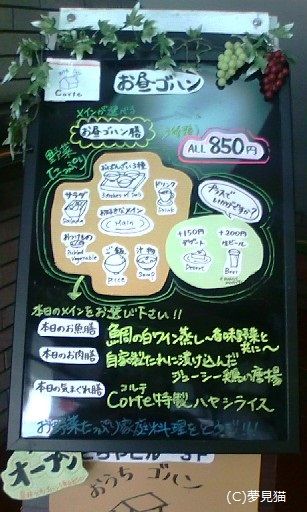 Corte
お昼ゴハン
メインが選べる
お昼ゴハン膳
ALL 850円
野菜
たっぷり
おばんざい3種
ドリンク
Drink
サラダ
Salada
お好きなメイン
Main
おつけもの
Pickled
Vegetable
ご飯
Price
汁物
Soup
プラスで
いかがですか?
+150円
デザート
Dessert
+200円
生ビール
Beer
本日のメインをお選び下さい!!
本日のお魚膳
鯛の白ワイン蒸し〜香味野菜と
共に〜
本日のお肉膳
自家製たれに漬け込んだ
ジューシー鶏の唐揚
本日の気まぐれ膳
コルテ
Corte特製ハヤシライス
お野菜たっぷり家庭料理をどうぞ!!
オープン
おうちゴハン
(C)夢見猫